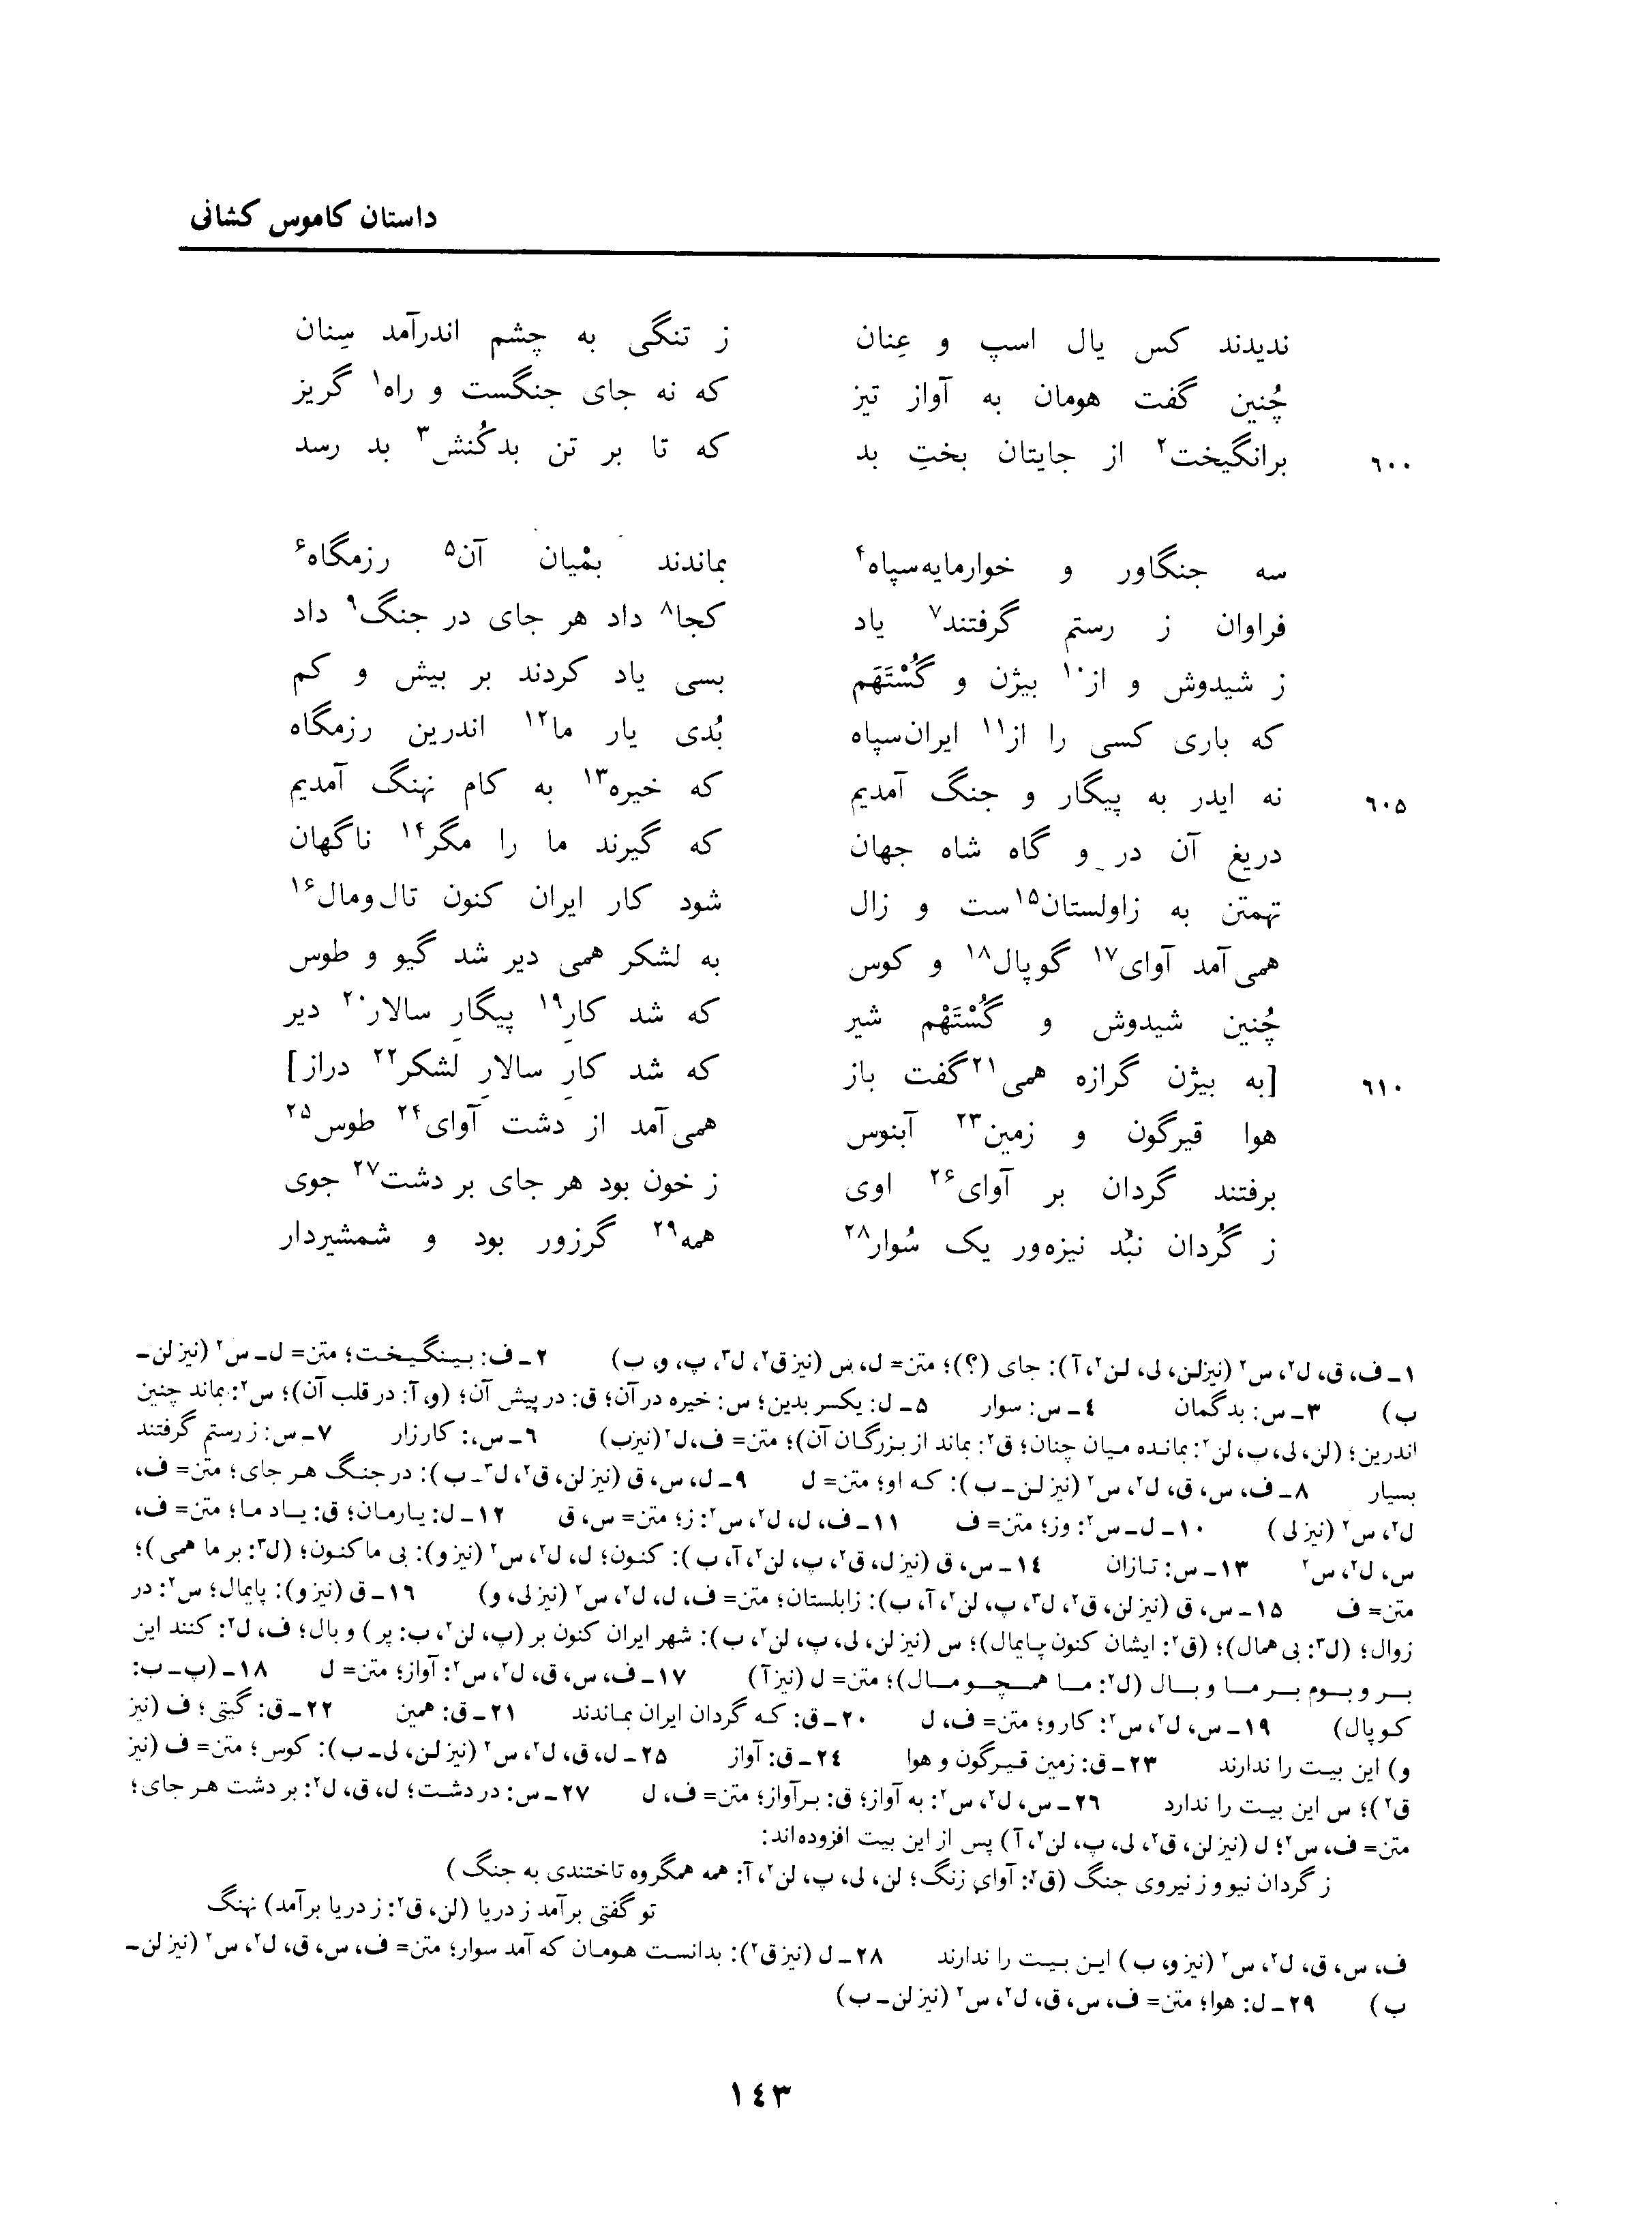 داستان کاموس کشانی
ندیدند کس یال اسپ و عِنان ز تنگی به چشم اندرآمد سِنان
چُنین گفت هومان به آواز تیز که نه جای جنگست و راه۱ گریز
۶۰۰ برانگیخت۲ از جایتان بختِ بد که تا بر تن بدکُنش۳ بد رسد
سه جنگاور و خوارمایه‌سپاه۴ بماندند بمْیان آن۵ رزمگاه۶
فراوان ز رستم گرفتند۷ یاد کجا۸ داد هر جای در جنگ۹ داد
ز شیدوش و از۱۰ بیژن و گُسْتَهَم بسی یاد کردند بر بیش و کم
که باری کسی را از۱۱ ایران‌سپاه بُدی یار ما۱۲ اندرین رزمگاه
۶۰۵ نه ایدر به پیگار و جنگ آمدیم که خیره۱۳ به کام نهنگ آمدیم
دریغ آن در و گاه شاه جهان که گیرند ما را مگر۱۴ ناگهان
تهمتن به زاولستان۱۵ست و زال شود کار ایران کنون تال‌ومال۱۶
همی‌آمد آوای۱۷ گوپال۱۸ و کوس به لشکر همی دیر شد گیو و طوس
چُنین شیدوش و گُسْتَهْم شیر که شد کارِ۱۹ پیگارِ سالار۲۰ دیر
۶۱۰ [به بیژن گرازه همی۲۱ گفت باز که شد کارِ سالارِ لشکر۲۲ دراز]
هوا قیرگون و زمین۲۳ آبنوس همی‌آمد از دشت آوای۲۴ طوس۲۵
برفتند گردان بر آوای۲۶ اوی ز خون بود هر جای بر دشت۲۷ جوی
ز گُردان نبُد نیزه‌ور یک سُوار۲۸ همه۲۹ گرزور بود و شمشیردار
۱ـ ف، ق، ل۲، س۲ (نیزلن، لی، لن۲، آ): جای (؟)؛ متن= ل، س (نیز ق۲، ل۳، پ، و، ب) ۲ـ ف: بینگیخت؛ متن= ل‌ـ س۲ (نیز لن‌ـ
ب) ۳ـ س: بدگمان ۴ـ س: سوار ۵ـ ل: یکسر بدین؛ س: خیره در آن؛ ق: در پیش آن؛ (و، آ: در قلب آن)؛ س۲: بماند چنین
اندرین؛ (لن، لی، پ، لن۲: بمانده میان چنان؛ ق۲: بماند از بزرگان آن)؛ متن= ف، ل۲ (نیزب) ۶ـ س،: کارزار ۷ـ س: ز رستم گرفتند
بسیار ۸ـ ف، س، ق، ل۲، س۲ (نیز لن‌ـ ب): که او؛ متن= ل ۹ـ ل، س، ق (نیز لن، ق۲، ل۳ـ ب): در جنگ هر جای؛ متن= ف،
ل۲، س۲ (نیز لی) ۱۰ـ ل‌ـ س۲: وز؛ متن= ف ۱۱ـ ف، ل، ل۲، س۲: ز؛ متن= س، ق ۱۲ـ ل: یارمان؛ ق: یاد ما؛ متن= ف،
س، ل۲، س۲ ۱۳ـ س: تازان ۱۴ـ س، ق (نیز ل، ق۲، پ، لن۲، آ، ب): کنون؛ ل، ل۲، س۲ (نیز و): بی ما کنون؛ (ل۳: بر ما همی)؛
متن= ف ۱۵ـ س، ق (نیز لن، ق۲، ل۳، پ، لن۲، آ، ب): زابلستان؛ متن= ف، ل، ل۲، س۲ (نیز لی، و) ۱۶ـ ق (نیز و): پایمال؛ س۲: در
زوال؛ (ل۳: بی همال)؛ (ق۲: ایشان کنون پایمال)؛ س (نیز لن، لی، پ، لن۲، ب): شهر ایران کنون بر (پ، لن۲، ب: پر) و بال؛ ف، ل۲: کنند این
بر و بوم بر ما و بال (ل۲: ما همچو مال)؛ متن= ل (نیز آ) ۱۷ـ ف، س، ق، ل۲، س۲: آواز؛ متن= ل ۱۸ـ (پ‌ـ ب:
کوپال) ۱۹ـ س، ل۲، س۲: کار و؛ متن= ف، ل ۲۰ـ ق: که گردان ایران بماندند ۲۱ـ ق: همین ۲۲ـ ق: گیتی؛ ف (نیز
و) این بیت را ندارند ۲۳ـ ق: زمین قیرگون و هوا ۲۴ـ ق: آواز ۲۵ـ ل، ق، ل۲، س۲ (نیز لن، لی‌ـ ب): کوس؛ متن= ف (نیز
ق۲)؛ س این بیت را ندارد ۲۶ـ س، ل۲، س۲: به آواز؛ ق: برآواز؛ متن= ف، ل ۲۷ـ س: در دشت؛ ل، ق، ل۲: بر دشت هر جای؛
متن= ف، س۲؛ ل (نیز لن، ق۲، لی، پ، لن۲، آ) پس از این بیت افزوده‌اند:
ز گردان نیو و ز نیروی جنگ (ق۲: آوای زنگ؛ لن، لی، پ، لن۲، آ: همه همگروه تاختندی به جنگ)
تو گفتی برآمد ز دریا (لن، ق۲: ز دریا برآمد) نهنگ
ف، س، ق، ل۲، س۲ (نیز و، ب) این بیت را ندارند ۲۸ـ ل (نیز ق۲): بدانست هومان که آمد سوار؛ متن= ف، س، ق، ل۲، س۲ (نیز لن‌ـ
ب) ۲۹ـ ل: هوا؛ متن= ف، س، ق، ل۲، س۲ (نیز لن‌ـ ب)
۱۴۳